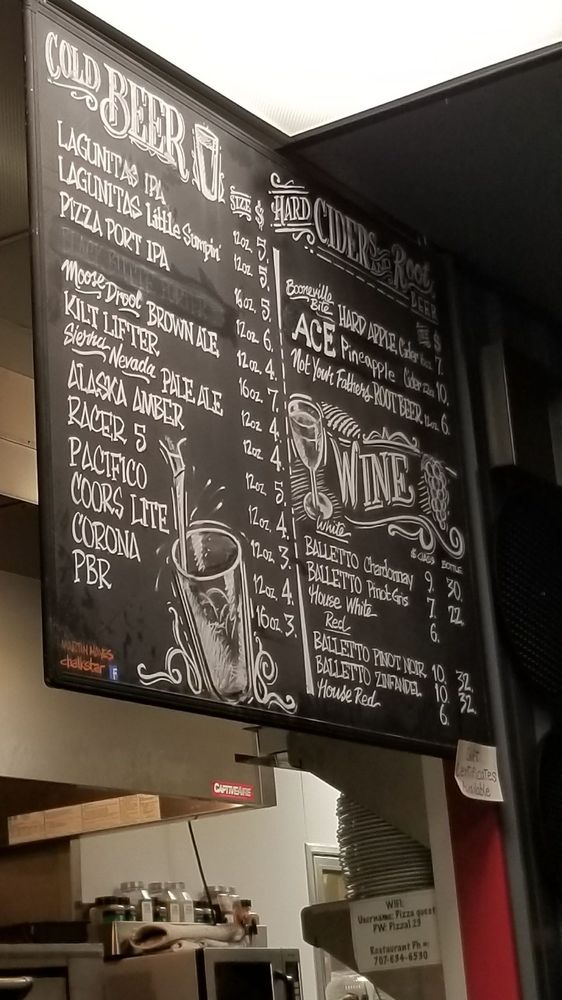 COLD BEER
SIZE $
LAGUNITAS IPA 12oz. 5.
LAGUNITAS Little Sumpin' 12oz. 5.
PIZZA PORT IPA 16oz. 5.
12oz. 6.
Moose Drool BROWN ALE 12oz. 4.
KILT LIFTER 16oz. 7.
Sierra Nevada PALE ALE 12oz. 4.
ALASKA AMBER 12oz. 4.
RACER 5 12oz. 5.
PACIFICO 12oz. 4.
COORS LITE 12oz. 3.
CORONA 12oz. 4.
PBR 16oz. 3.
chalkstar f
HARD CIDERS AND Root BEER
$
Booneville Bite HARD APPLE Cider 7.
ACE Pineapple Cider 10.
Not Your Fathers ROOT BEER 12oz. 6.
WINE
White
GLASS BOTTLE
BALLETTO Chardonnay 9. 30.
BALLETTO Pinot Gris 7. 22.
House White 6.
Red
BALLETTO PINOT NOIR 10. 32.
BALLETTO ZINFANDEL 10. 32.
House Red 6.
Gift
Certificates
Available
CAPTIVEAIRE
WIFI:
Username: Pizza guest
PW: Pizza129
Restaurant Ph #:
707-634-6530